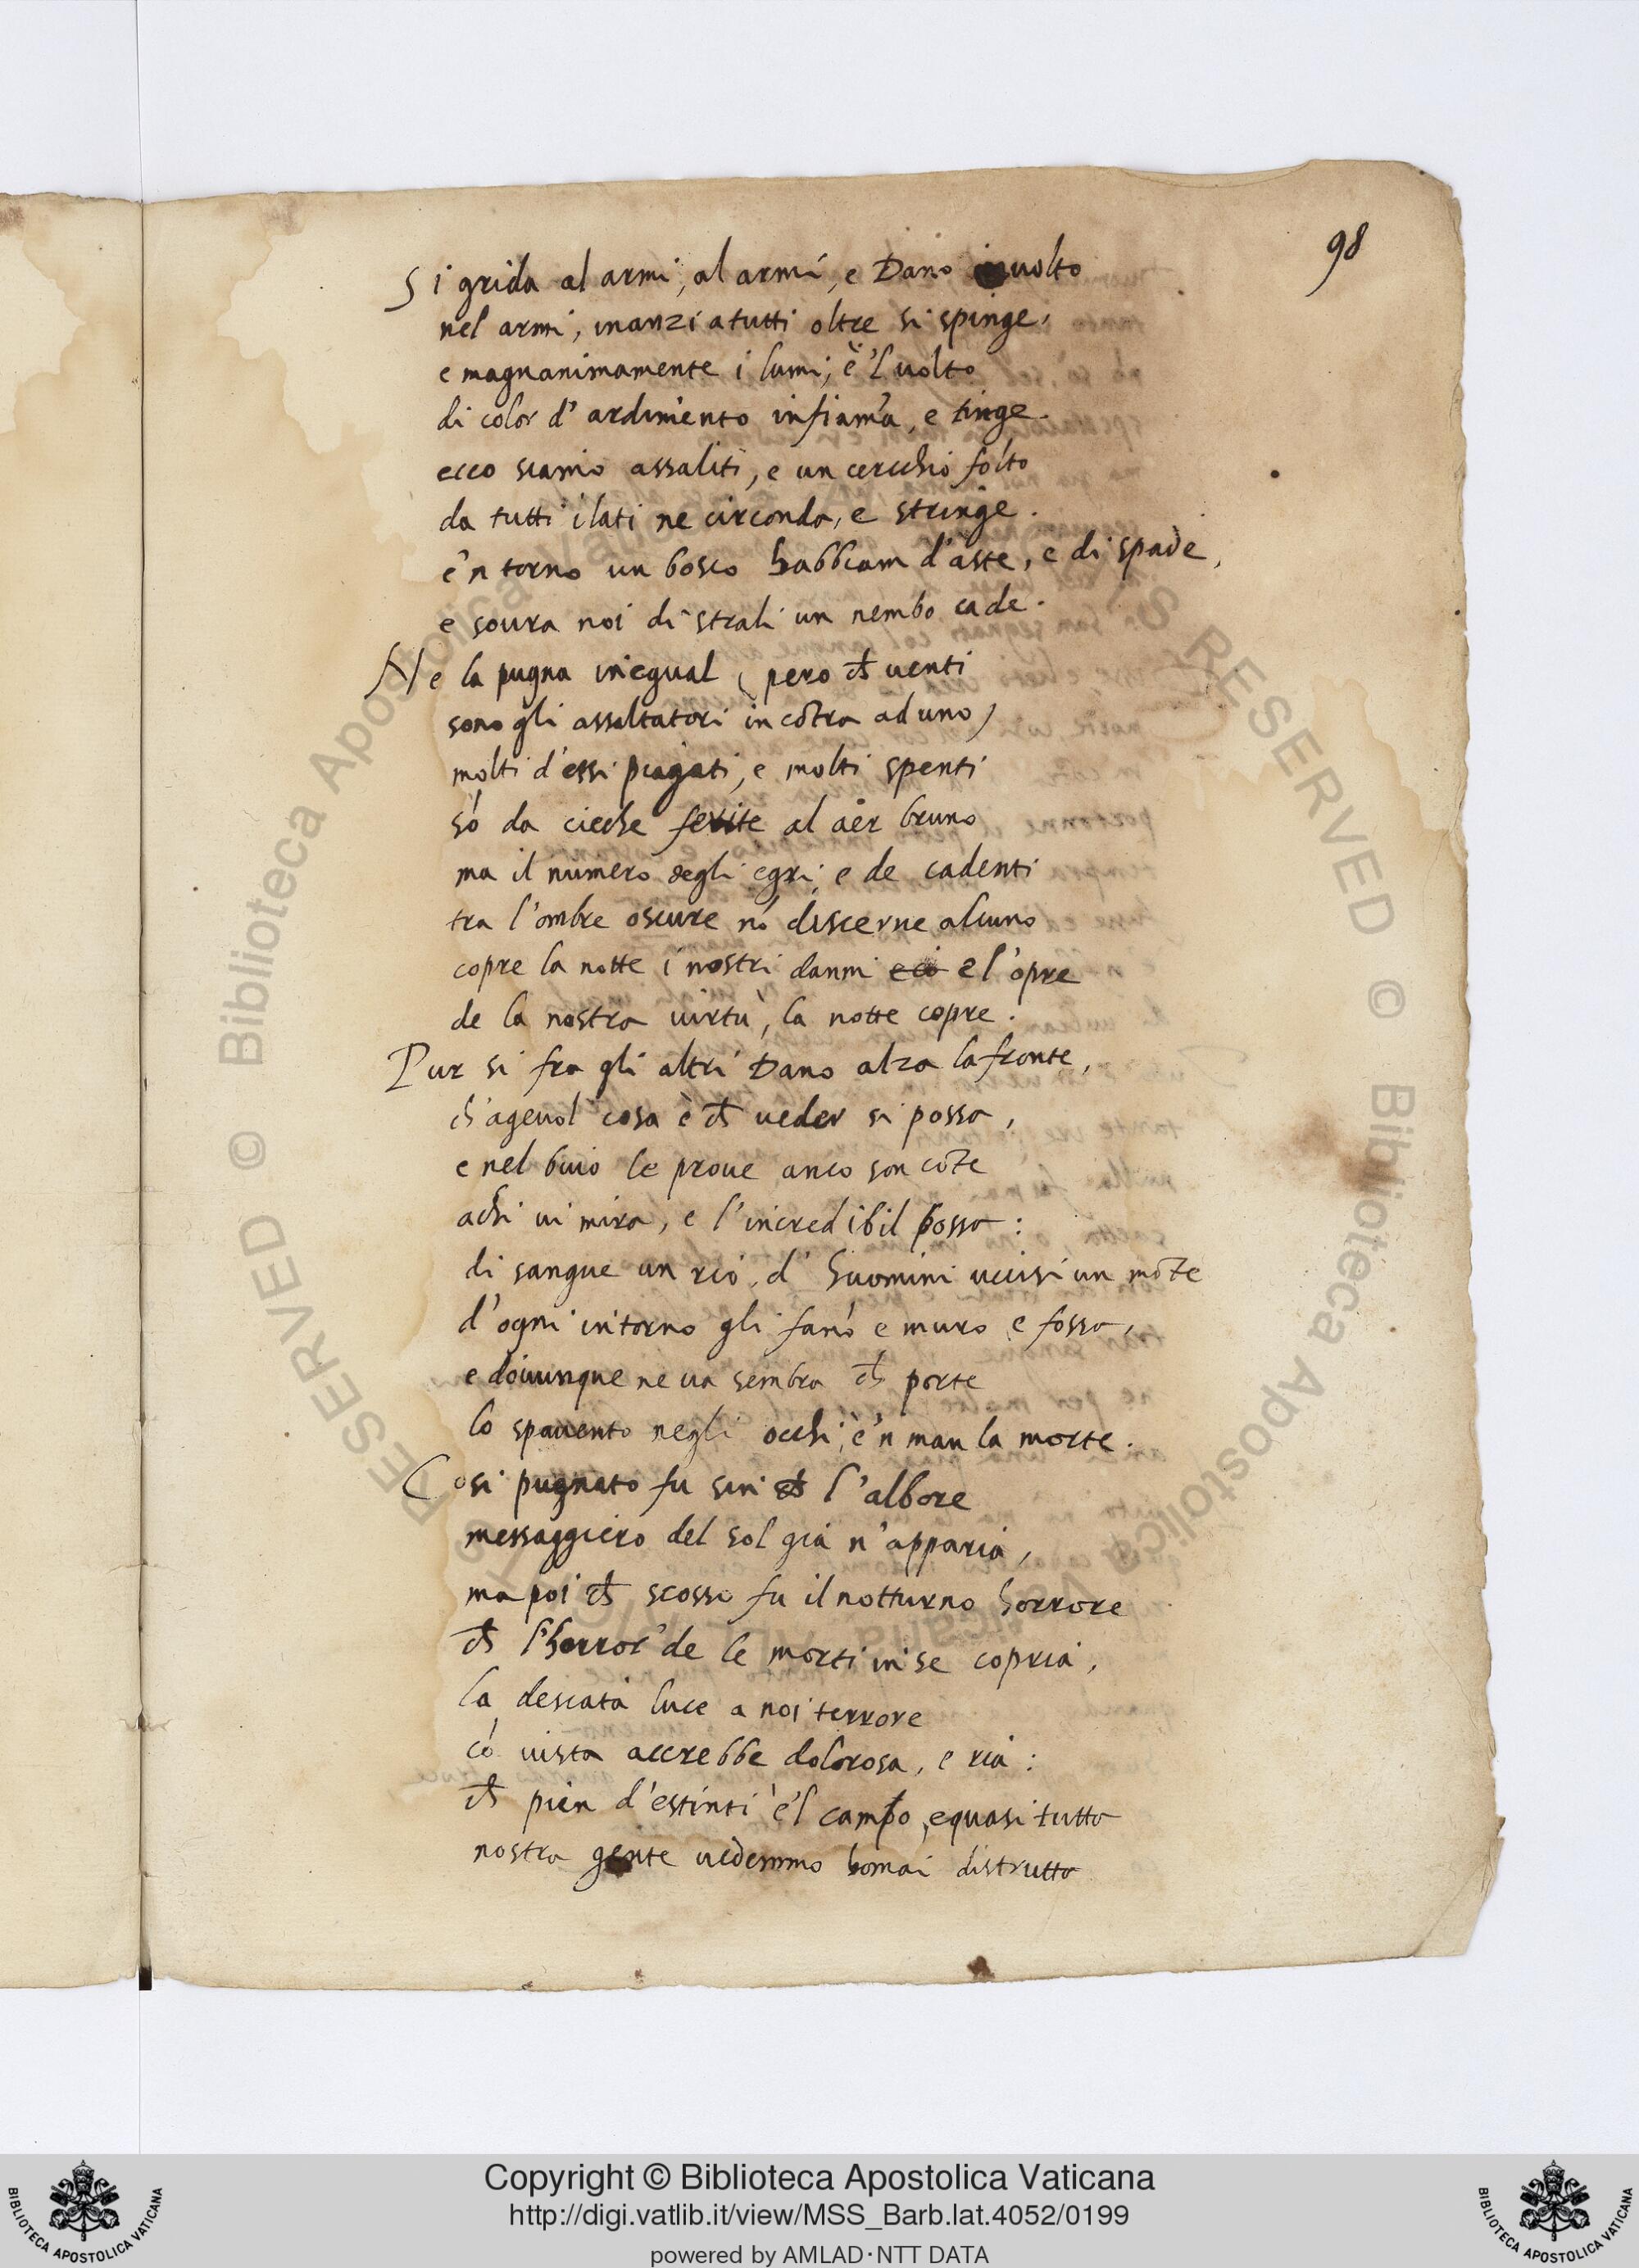 98
Si grida al armi, al armi, e Dano inuolto
nel armi, inanzi a tutti oltre si spinge,
e magnanimamente i lumi, e 'l uolto
di color d'ardimento infiama, e tinge.
ecco siamo assaliti, e un cerchio folto
da tutti i lati ne circonda, e stringe.
e 'n torno un bosco habbiam d'aste, e di spade,
e soura noi di strali un nembo cade.
Ne la pugna inegual (pero ch uenti
sono gli assaltatori in cōtra ad uno)
molti d'essi piagati, e molti spenti
sō da cieche ferite al aer bruno
ma il numero degli egri, e de cadenti
tra l'ombre oscure nō discerne alcuno
copre la notte i nostri danni e l'opre
de la nostra uirtù, la notte copre.
Pur si fra gli altri Dano alza la fronte,
ch'ageuol cosa è ch ueder si possa,
e nel buio le proue anco son cōte
a chi ui mira, e l'incredibil possa:
di sangue un rio, d' huomini uccisi un mōte
d'ogni intorno gli fanō e muro e fossa,
e douunque ne ua sembra ch porte
lo spauento negli occhi, e 'n man la morte.
Cosi pugnato fu sin ch l'albore
messaggiero del sol già n'apparia,
ma poi ch scosso fu il notturno horrore
ch l'horror de le morti in se copria,
la desiata luce a noi terrore
cō uista accrebbe dolorosa, e ria:
ch pien d'estinti e 'l campo, e quasi tutta
nostra gente uedemmo homai distrutta
RESERVED © Biblioteca Apostolica Vaticana
ALL RIGHTS RESERVED © Biblioteca Apostolica Vaticana
BIBLIOTECA APOSTOLICA VATICANA
Copyright © Biblioteca Apostolica Vaticana
http://digi.vatlib.it/view/MSS_Barb.lat.4052/0199
powered by AMLAD·NTT DATA
BIBLIOTECA APOSTOLICA VATICANA